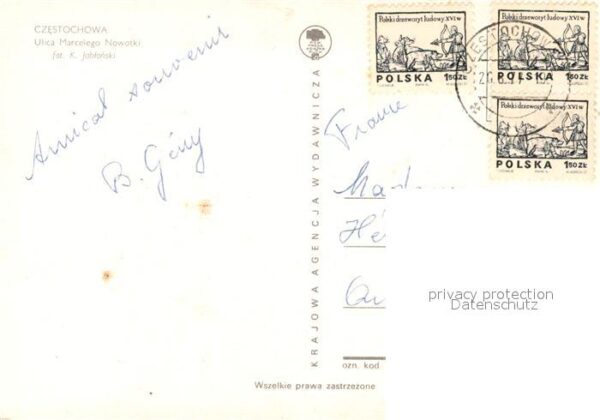 CZĘSTOCHOWA
Ulica Marcelego Nowotki
fot. K. Jabłoński
Amical souvenir
B. Gény
KRAJOWA AGENCJA WYDAWNICZA
Polski drzeworyt ludowy XVI w
POLSKA 1,50 ZŁ
Polski drzeworyt ludowy XVI w
POLSKA 1,50 ZŁ
Polski drzeworyt ludowy XVI w
POLSKA 1,50 ZŁ
CZĘSTOCHOWA
France
ozn. kod
Wszelkie prawa zastrzeżone
privacy protection
Datenschutz